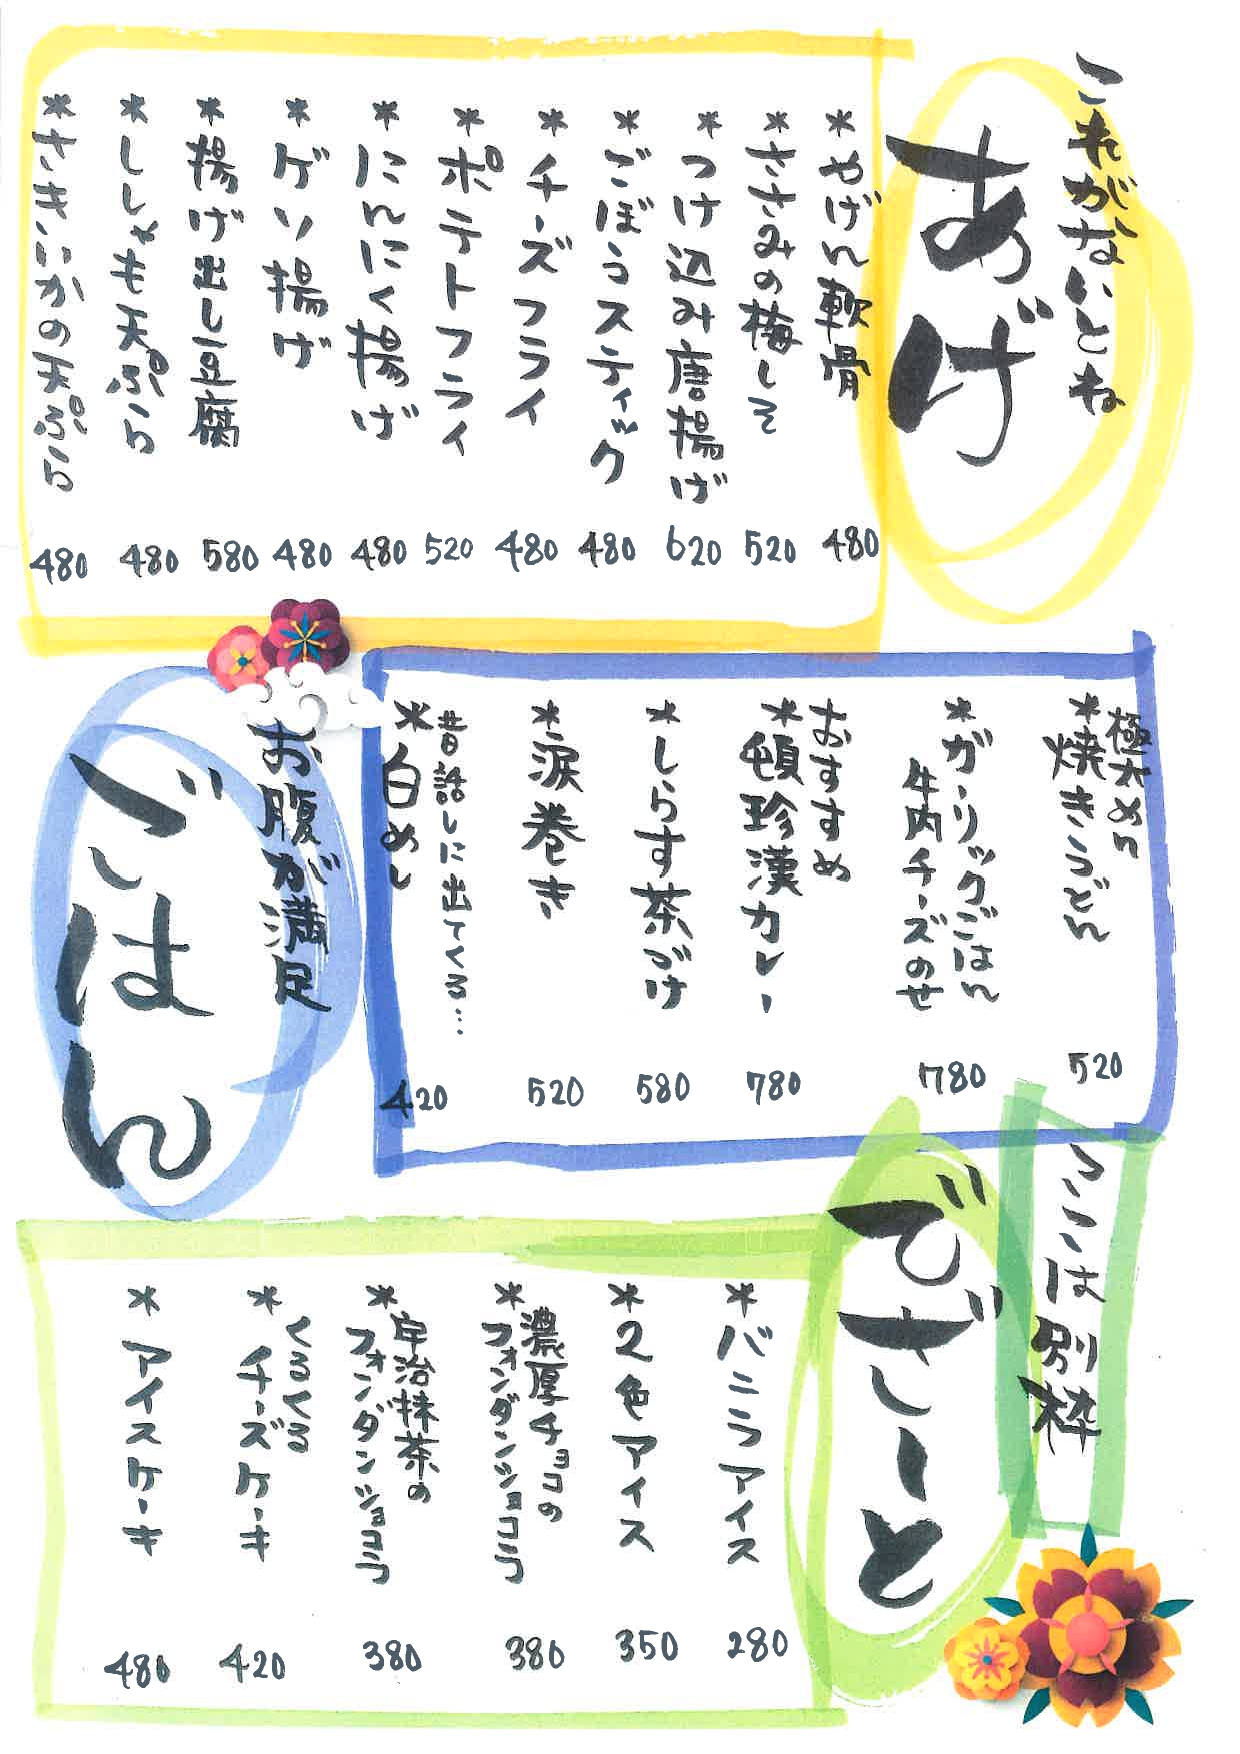 これがないとね
あげ
*やげん軟骨 480
*ささみの梅しそ 520
*つけ込み唐揚げ 620
*ごぼうスティック 480
*チーズフライ 480
*ポテトフライ 520
*にんにく揚げ 480
*ゲソ揚げ 480
*揚げ出し豆腐 580
*ししゃも天ぷら 480
*さきいかの天ぷら 480
お腹が満足
ごはん
極太めん
*焼きうどん 520
*ガーリックごはん
牛肉チーズのせ 780
おすすめ
*頓珍漢カレー 780
*しらす茶づけ 580
*涙巻き 520
昔話しに出てくる…
*白めし 420
ここは別枠
でざーと
*バニラアイス 280
*2色アイス 350
*濃厚チョコの
フォンダンショコラ 380
*宇治抹茶の
フォンダンショコラ 380
くるくる
*チーズケーキ 420
*アイスケーキ 480